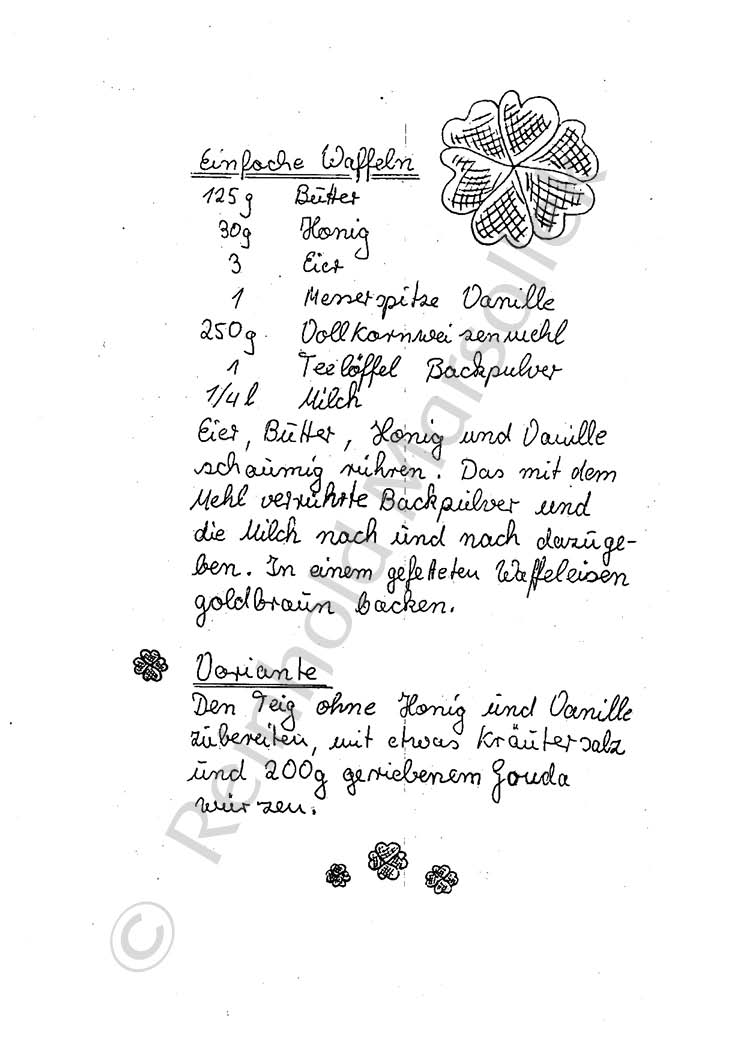 Einfache Waffeln
125g Butter
30g Honig
3 Eier
1 Messerspitze Vanille
250g Vollkornweizenmehl
1 Teelöffel Backpulver
1/4 l Milch
Eier, Butter, Honig und Vanille
schaumig rühren. Das mit dem
Mehl verrührte Backpulver und
die Milch nach und nach dazuge-
ben. In einem gefetteten Waffeleisen
goldbraun backen.
Variante
Den Teig ohne Honig und Vanille
zubereiten, mit etwas Kräutersalz
und 200g geriebenem Gouda
würzen.
© Reinhold Marsollek